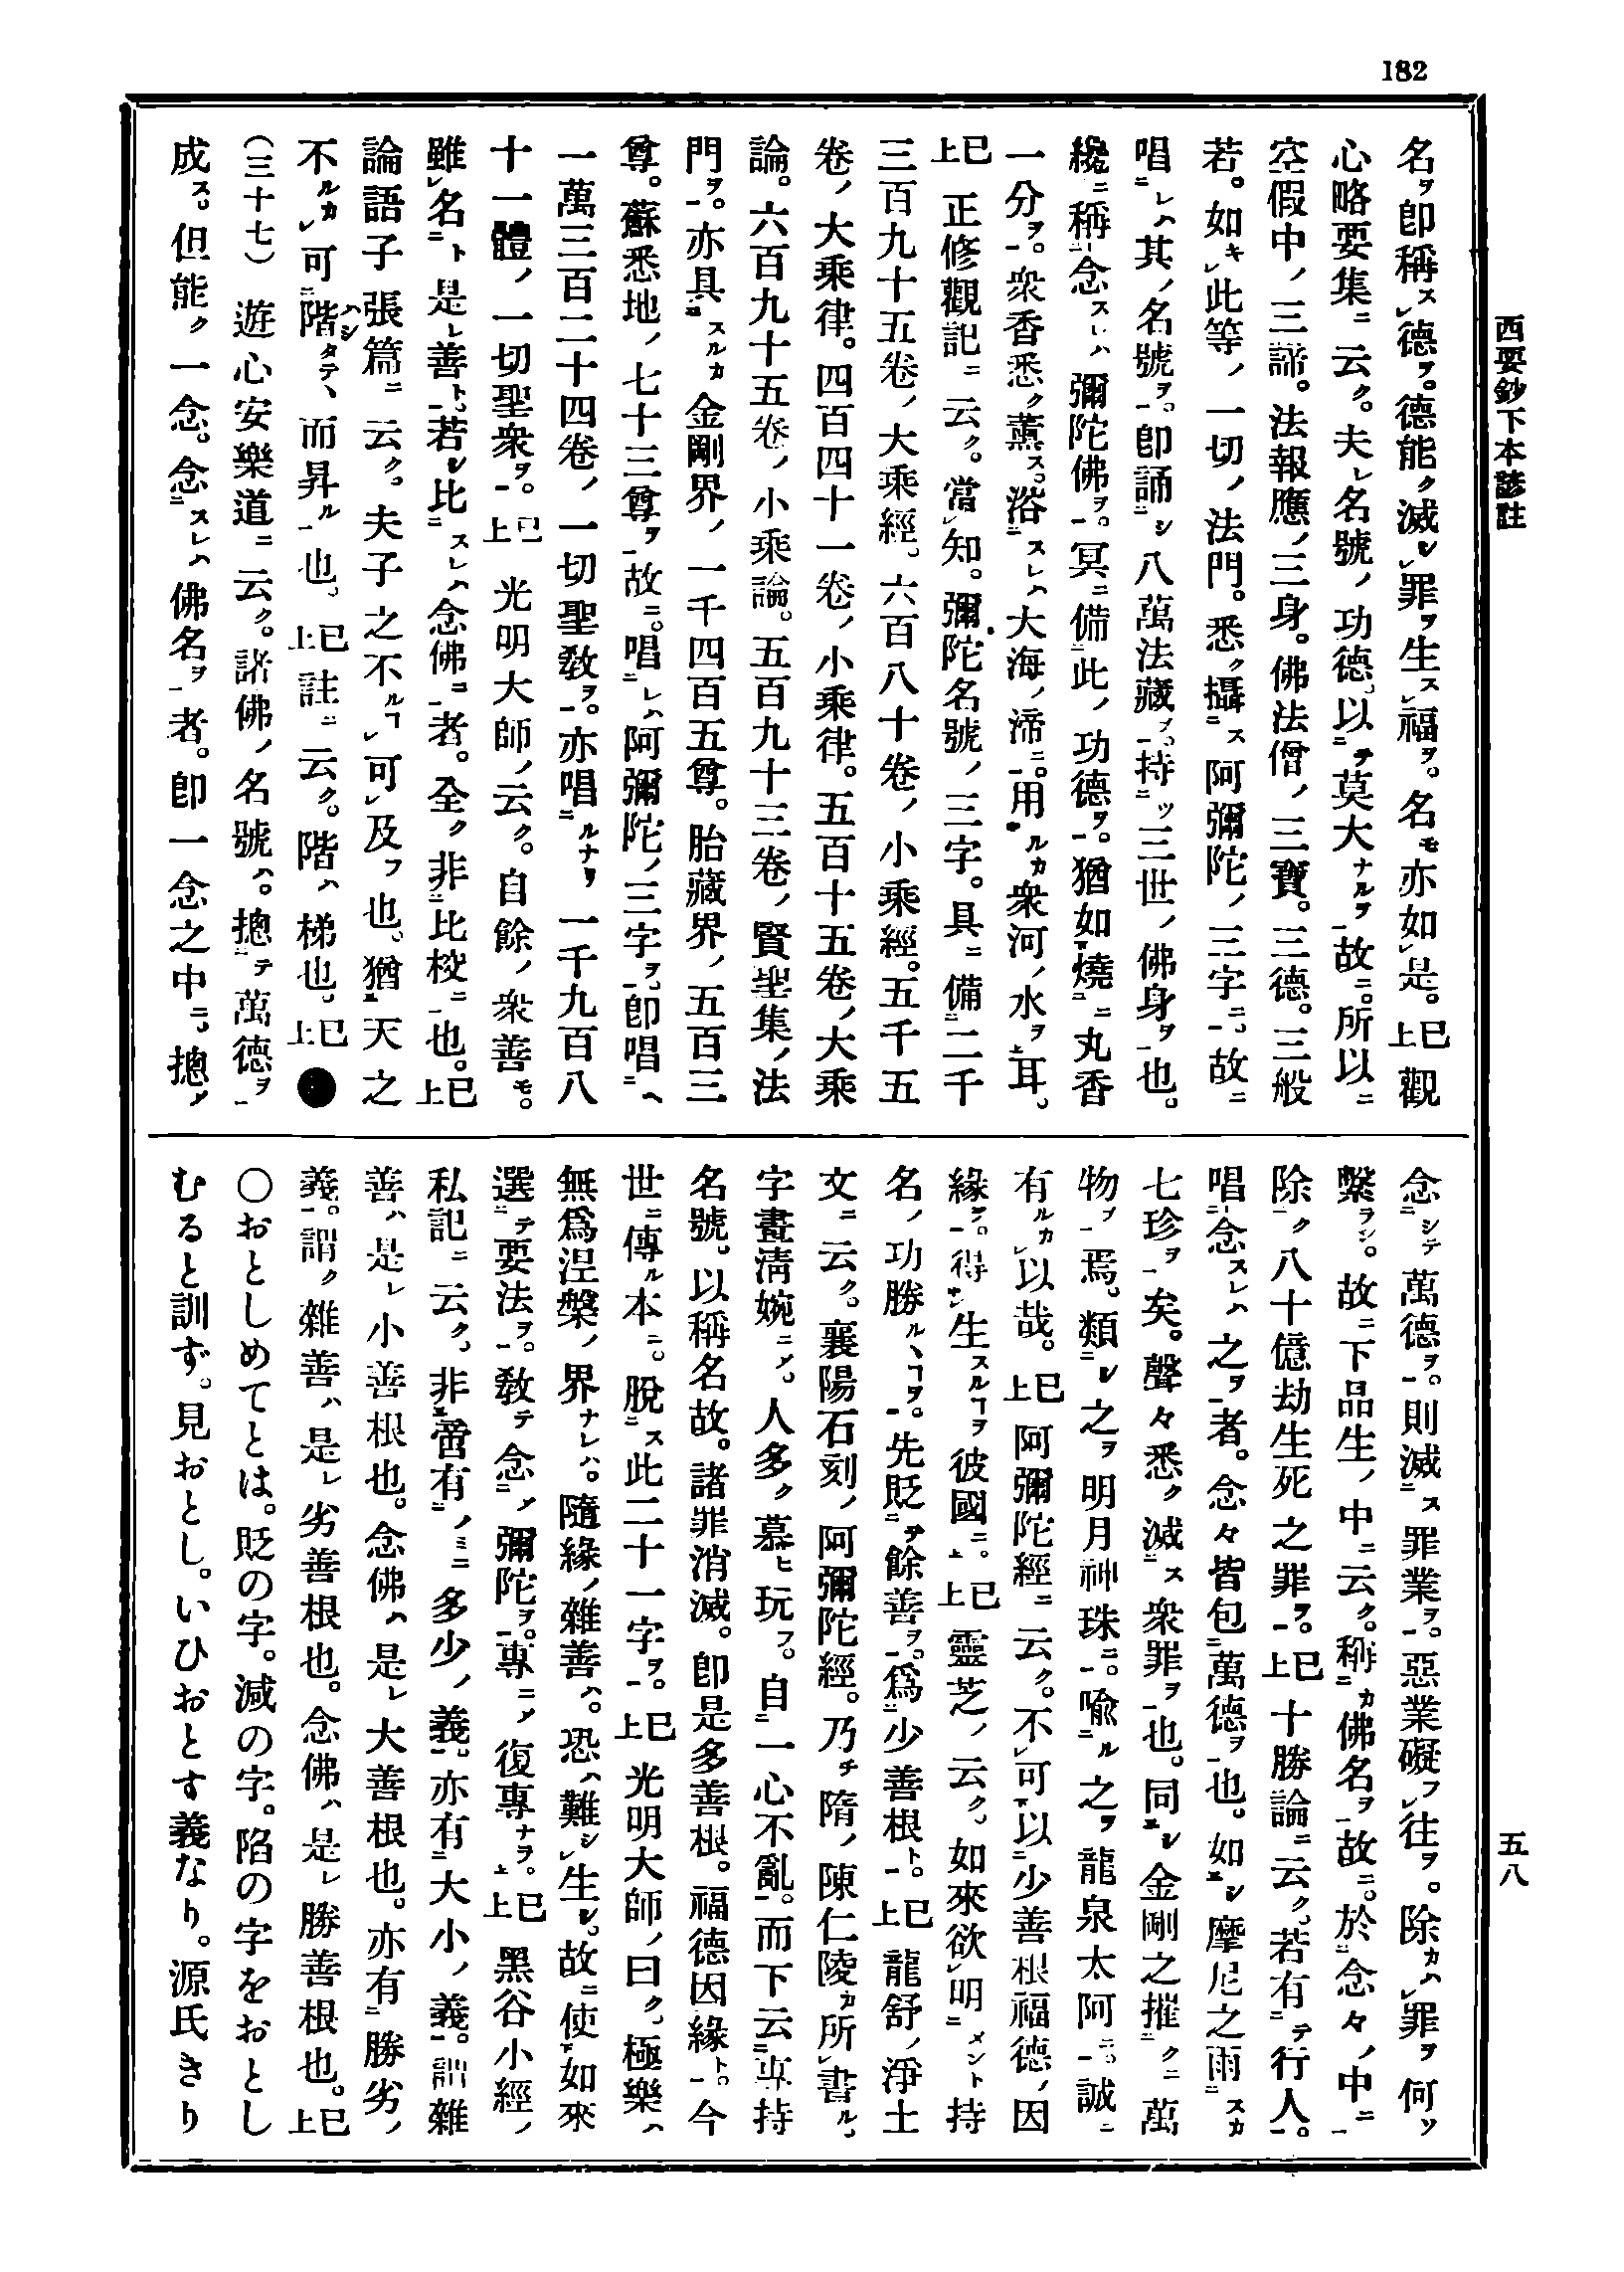 182
西要鈔下本諺註
五八
名ヲ卽稱ス德ヲ。德能ク滅シ罪ヲ生ス福ヲ。名モ亦如是。已上 觀
心略要集ニ云ク。夫レ名號ノ功德。以テ莫大ナルヲ故ニ。所以ニ
空假中ノ三諦。法報應ノ三身。佛法僧ノ三寶。三德。三般
若。如キ此等ノ一切ノ法門。悉ク攝ス阿彌陀ノ三字ニ。故ニ
唱レハ其ノ名號ヲ。卽誦シ八萬法藏ヲ。持ツ三世ノ佛身ヲ也。
纔ニ稱念スレハ彌陀佛ヲ。冥ニ備此ノ功德ヲ。猶如燒ニ丸香
一分ヲ。衆香悉ク薰ス。浴スレハ大海ノ渧ニ。用ルカ衆河ノ水ヲ耳。
已上 正修觀記ニ云ク。當知。彌陀名號ノ三字。具ニ備二千
三百九十五卷ノ大乘經。六百八十卷ノ小乘經。五千五
卷ノ大乘律。四百四十一卷ノ小乘律。五百十五卷ノ大乘
論。六百九十五卷ノ小乘論。五百九十三卷ノ賢聖集ノ法
門ヲ。亦具スルカ金剛界ノ一千四百五尊。胎藏界ノ五百三
尊。蘇悉地ノ七十三尊ヲ。故ニ。唱レハ阿彌陀ノ三字ヲ。卽唱ヘ
一萬三百二十四卷ノ一切聖敎ヲ。亦唱ルナリ一千九百八
十一體ノ一切聖衆ヲ。已上 光明大師ノ云ク。自餘ノ衆善モ。
雖名ト是レ善ト。若シ比スレハ念佛ニ者。全ク非比校ニ也。已上
論語子張篇ニ云ク。夫子之不ルコ可及フ也。猶天之
不ルカ可階ハシタテヽ而昇ル也。已上 註ニ云ク。階ハ梯也。已上 ●
（三十七） 遊心安樂道ニ云ク。諸佛ノ名號ハ。摠テ萬德ヲ
成ス。但能ク一念。念スレハ佛名ヲ者。卽一念之中ニ。摠ノ
念シテ萬德ヲ。則滅ス罪業ヲ。惡業礙フ往ヲ。除カハ罪ヲ何ソ
繫ラシ。故ニ下品生ノ中ニ云ク。稱カ佛名ヲ故ニ。於念々ノ中ニ
除ク八十億劫生死之罪ヲ。已上 十勝論ニ云ク。若有テ行人。
唱念スレハ之ヲ者。念々皆包萬德ヲ也。如シ摩尼之雨スカ
七珍ヲ矣。聲々悉ク滅ス衆罪ヲ也。同シ金剛之摧クニ萬
物ヲ焉。類シ之ヲ明月神珠ニ。喩ル之ヲ龍泉太阿ニ。誠ニ
有ルカ以哉。已上 阿彌陀經ニ云ク。不可以少善根福德ノ因
緣ヲ。得ン生スルコヲ彼國ニ。已上 靈芝ノ云ク。如來欲明メント持
名ノ功勝ルヽコヲ。先貶テ餘善ヲ。爲少善根ト。已上 龍舒ノ淨土
文ニ云ク。襄陽石刻ノ阿彌陀經。乃チ隋ノ陳仁陵カ所書ル。
字畫淸婉ニメ。人多ク慕ヒ玩フ。自一心不亂。而下云專持
名號。以稱名故。諸罪消滅。卽是多善根。福德因緣ト。今
世ニ傳ル本ニ。脫ス此二十一字ヲ。已上 光明大師ノ曰ク。極樂ハ
無爲涅槃ノ界ナレハ。隨緣ノ雜善ハ。恐ハ難シ生シ。故ニ使如來
選テ要法ヲ。敎テ念メ彌陀ヲ。專ニメ復專ナヲ。已上 黑谷小經ノ
私記ニ云ク。非啻有ノミニ多少ノ義。亦有大小ノ義。謂雜
善ハ是レ小善根也。念佛ハ是レ大善根也。亦有勝劣ノ
義。謂ク雜善ハ是レ劣善根也。念佛ハ是レ勝善根也。已上
○おとしめてとは。貶の字。減の字。陷の字をおとし
むると訓ず。見おとし。いひおとす義なり。源氏きり